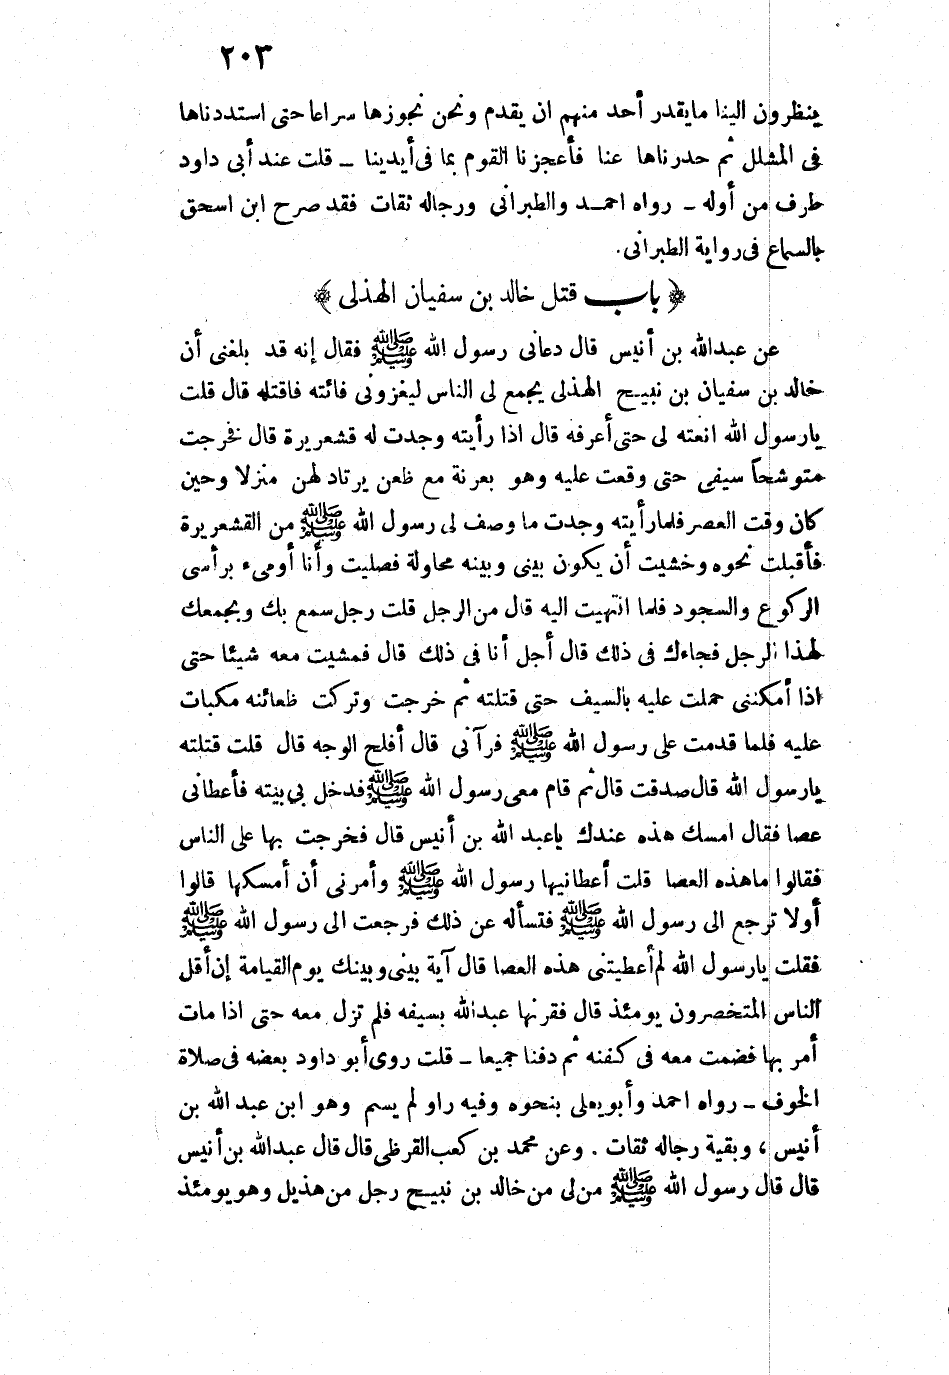 ٢٠٣
ينظرون الينا مايقدر أحد منهم ان يقدم ونحن نجوزها سراعا حتى استددناها
فى المشلل ثم حدرناها عنا فأعجزنا القوم بما فى أيدينا ــ قلت عند أبى داود
طرف من أوله ــ رواه احمد والطبرانى ورجاله ثقات فقد صرح ابن اسحق
بالسماع فى رواية الطبرانى.
﴿ باب قتل خالد بن سفيان الهذلى ﴾
عن عبدالله بن أنيس قال دعانى رسول الله ﷺ فقال إنه قد بلغنى أن
خالد بن سفيان بن نبيح الهذلى يجمع لى الناس ليغزونى فائته فاقتله قال قلت
يارسول الله انعته لى حتى أعرفه قال اذا رأيته وجدت له قشعريرة قال فخرجت
متوشحاً سيفى حتى وقعت عليه وهو بعرنة مع ظعن يرتاد لهن منزلا وحين
كان وقت العصر فلما رأيته وجدت ما وصف لى رسول الله ﷺ من القشعريرة
فأقبلت نحوه وخشيت أن يكون بينى وبينه محاولة فصليت وأنا أومىء برأسى
الركوع والسجود فلما انتهيت اليه قال من الرجل قلت رجل سمع بك وبجمعك
لهذا الرجل فجاءك فى ذلك قال أجل أنا فى ذلك قال فمشيت معه شيئا حتى
اذا أمكننى حملت عليه بالسيف حتى قتلته ثم خرجت وتركت ظعائنه مكبات
عليه فلما قدمت على رسول الله ﷺ فرآنى قال أفلح الوجه قال قلت قتلته
يارسول الله قال صدقت قال ثم قام معى رسول الله ﷺ فدخل بى بيته فأعطانى
عصا فقال امسك هذه عندك ياعبد الله بن أنيس قال فخرجت بها على الناس
فقالوا ماهذه العصا قلت أعطانيها رسول الله ﷺ وأمرنى أن أمسكها قالوا
أولا ترجع الى رسول الله ﷺ فتسأله عن ذلك فرجعت الى رسول الله ﷺ
فقلت يارسول الله لم أعطيتنى هذه العصا قال آية بينى وبينك يوم القيامة إن أقل
الناس المتخصرون يومئذ قال فقرنها عبدالله بسيفه فلم تزل معه حتى اذا مات
أمر بها فضمت معه فى كفنه ثم دفنا جميعا ــ قلت روى أبو داود بعضه فى صلاة
الخوف ــ رواه احمد وأبو يعلى بنحوه وفيه راو لم يسم وهو ابن عبد الله بن
أنيس ، وبقية رجاله ثقات . وعن محمد بن كعب القرظى قال قال عبدالله بن أنيس
قال قال رسول الله ﷺ من لى من خالد بن نبيح رجل من هذيل وهو يومئذ